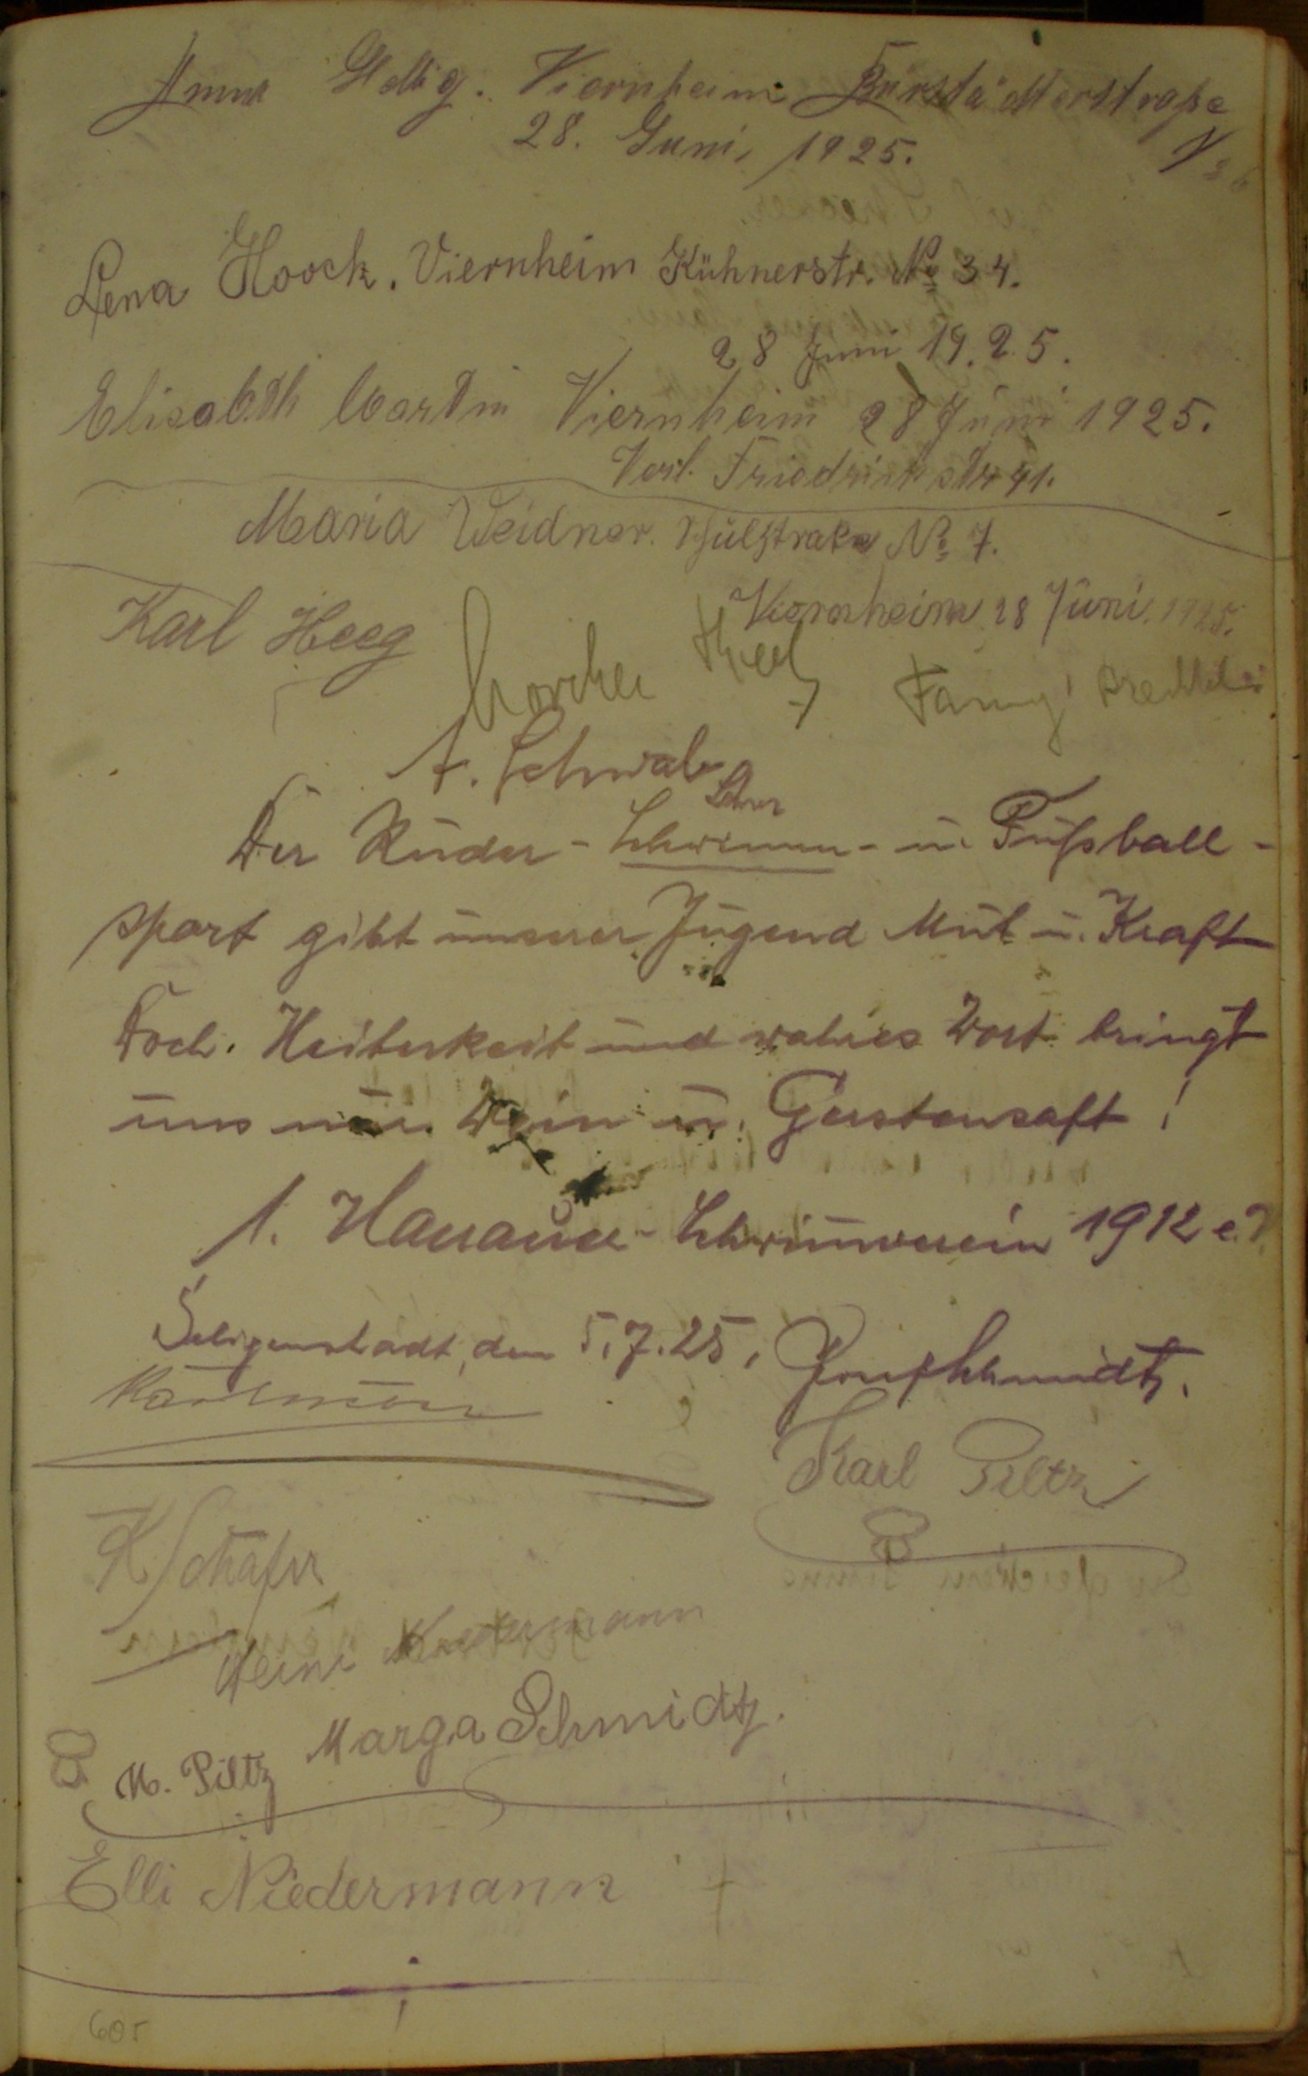 Anna Helbig. Viernheim Bürstädterstraße
28. Juni, 1925.
Lena Hoock. Viernheim Kühnerstr. No 34.
28 Juni 19.2.5.
Elisabeth Martin Viernheim 28 Juni 1925.
Verl. Friedrichstr 41.
Maria Weidner. Schulstraße No 7.
Viernheim 28 Juni. 1925.
Karl Heeg
A. Schwab
Der Ruder - Schwimm - u. Fußball -
sport gibt unserer Jugend Mut u. Kraft
Doch. Heiterkeit und wahres Wort bringt
uns nur Wein u. Gerstensaft!
1. Hanauer - Schwimverein 1912 e.V.
Seligenstadt, den 5.7.25, Josef Schmidt.
Karl Piltz
K Schäfer
Heini
Marga Schmidt.
M. Piltz
Elli Niedermann
605